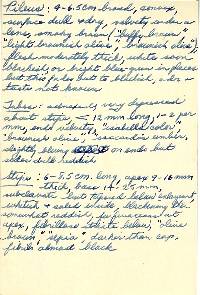 Pileus: 4-6.5 cm broad, convex,
surface dull & dry, velvety under a
lens, smoky brown ("buffy brown"
"light brownish olive", "brownish olive");
flesh moderately thick, white soon
blackish or slight blue-green in places
but this fades but to blackish, odor &
taste not known
Tubes: adnexed, very depressed
about stipe, < 12 mm long, 1-2 per
mm, ends velvety, "isabella color",
"brownish olive",
slightly bluing on ends but
older dull reddish
Stipe: 6-8.5 cm long, apex 9-16 mm
thick, base + 25 mm,
subclavate but tapered below enlargement
whitish & solid white, blackening then
somewhat reddish, furfuraceous at
apex, fibrillose striate below, "olive
brown," "sepia", darker than cap,
fibrils almost black